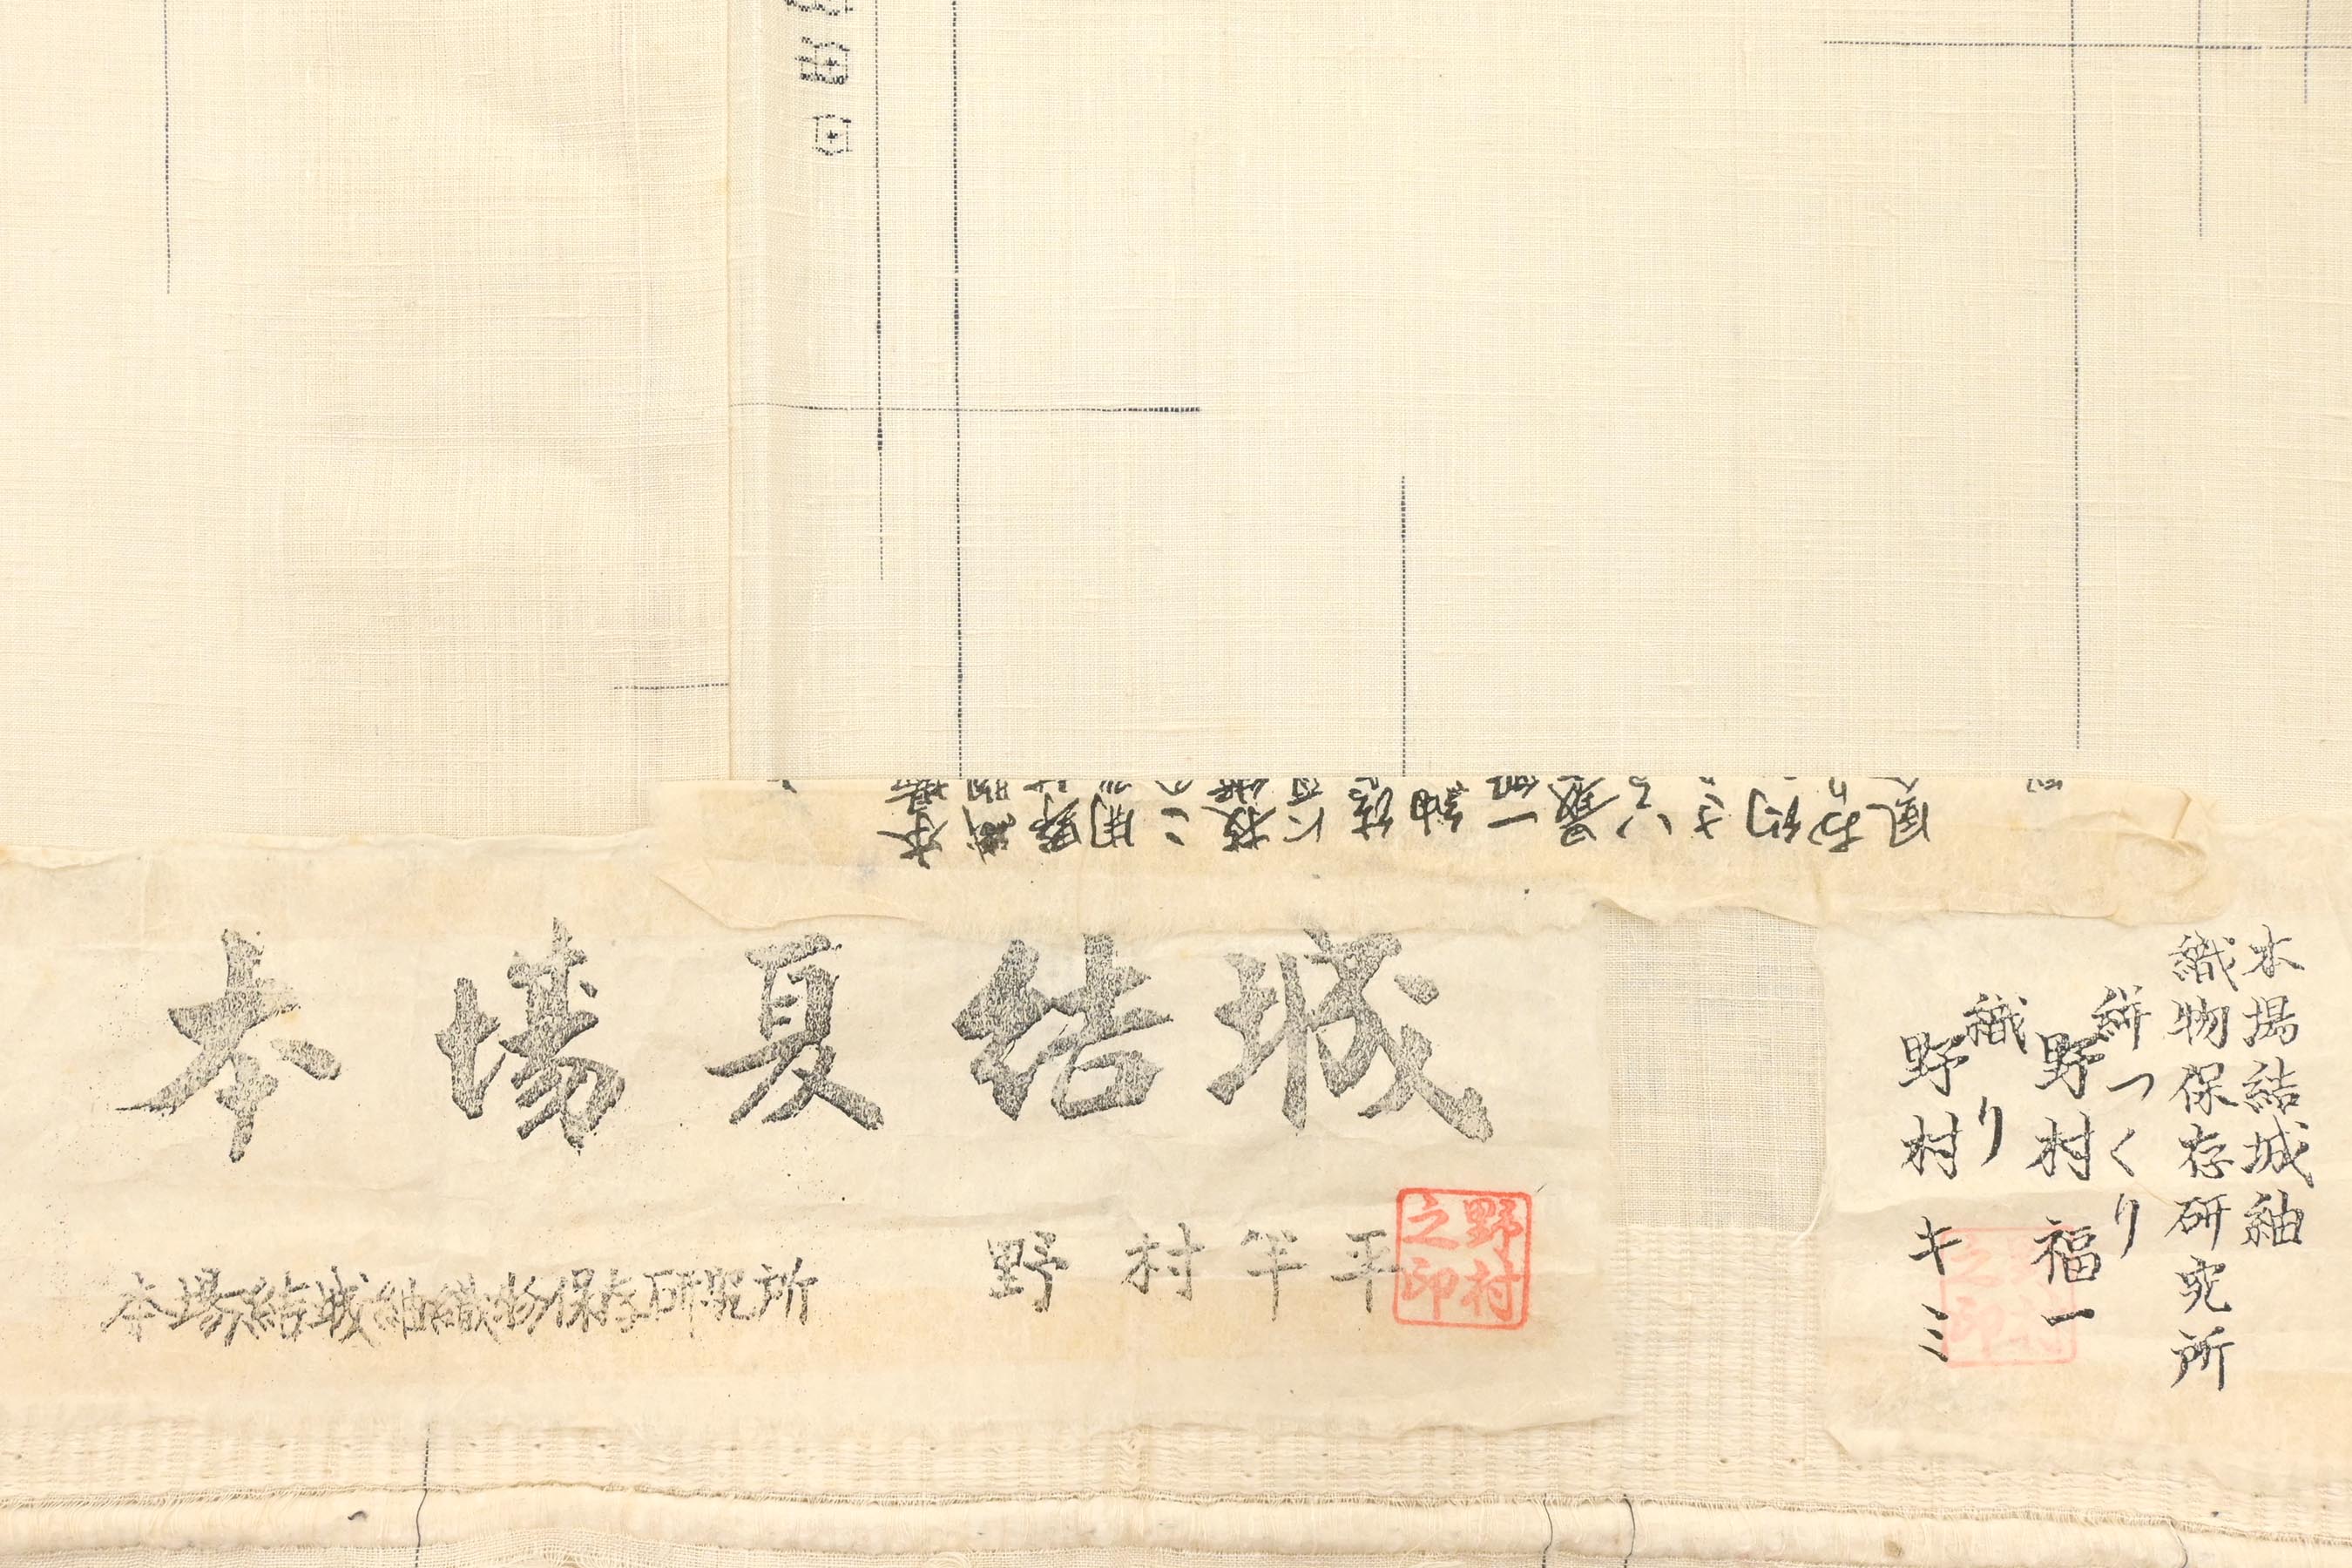 本場夏結城
野村半平
野村之印
本場結城紬織物保存研究所
本場結城紬
織物保存研究所
絣つくり
野村福一
織り
野村キミ